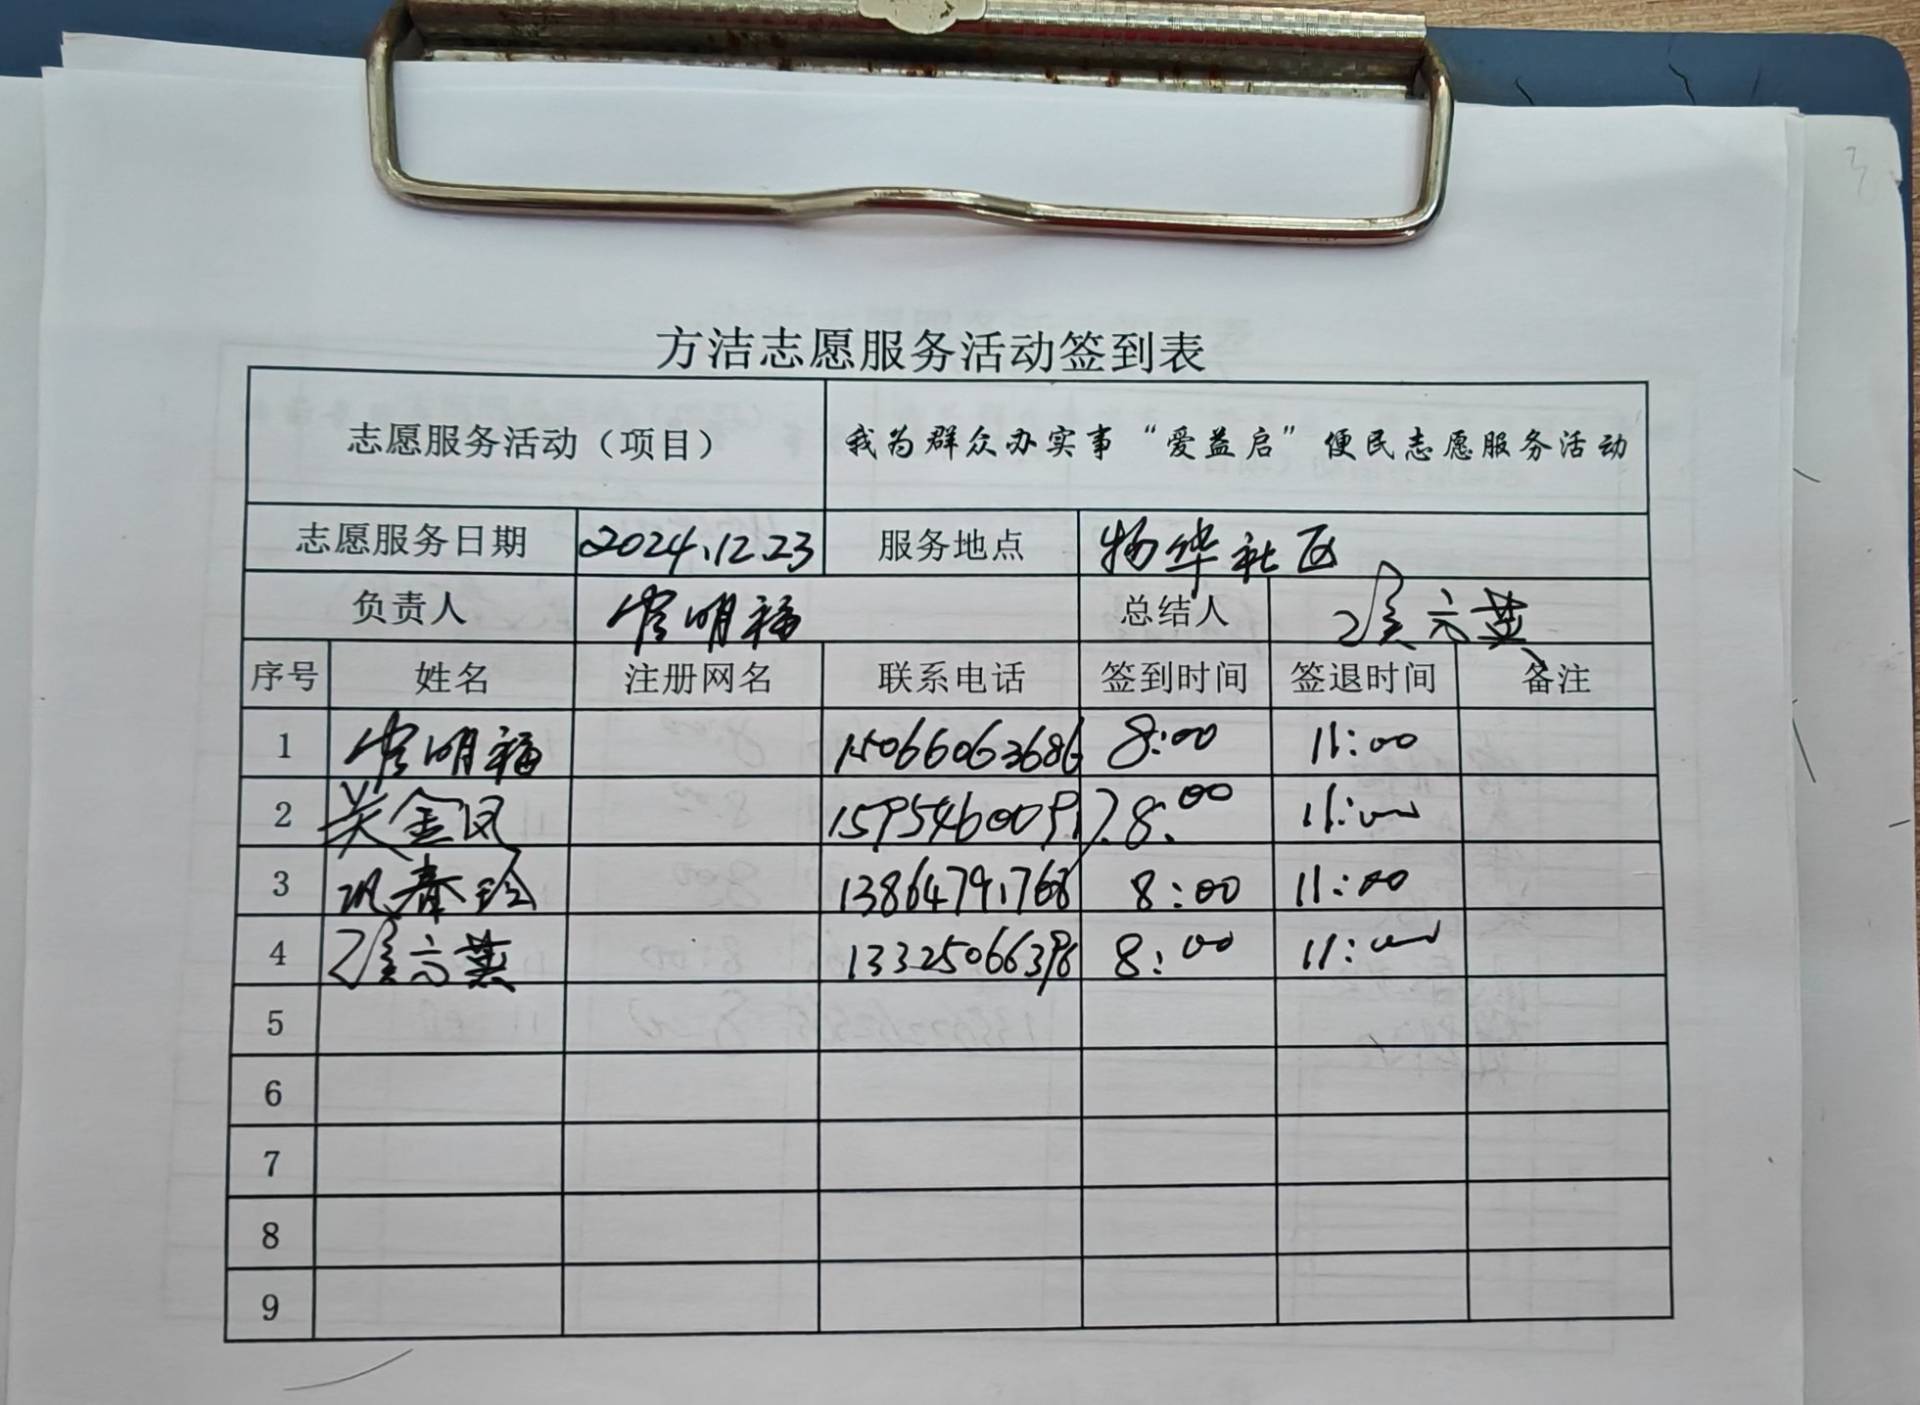 方洁志愿服务活动签到表
志愿服务活动（项目） 我为群众办实事“爱益启”便民志愿服务活动
志愿服务日期 2024.12.23 服务地点 物华社区
负责人 明福 总结人
序号 姓名 注册网名 联系电话 签到时间 签退时间 备注
1 明福 15066063686 8:00 11:00
2 吴金凤 15954600917 8:00 11:00
3 巩春玲 13864791768 8:00 11:00
4 13325066398 8:00 11:00
5
6
7
8
9